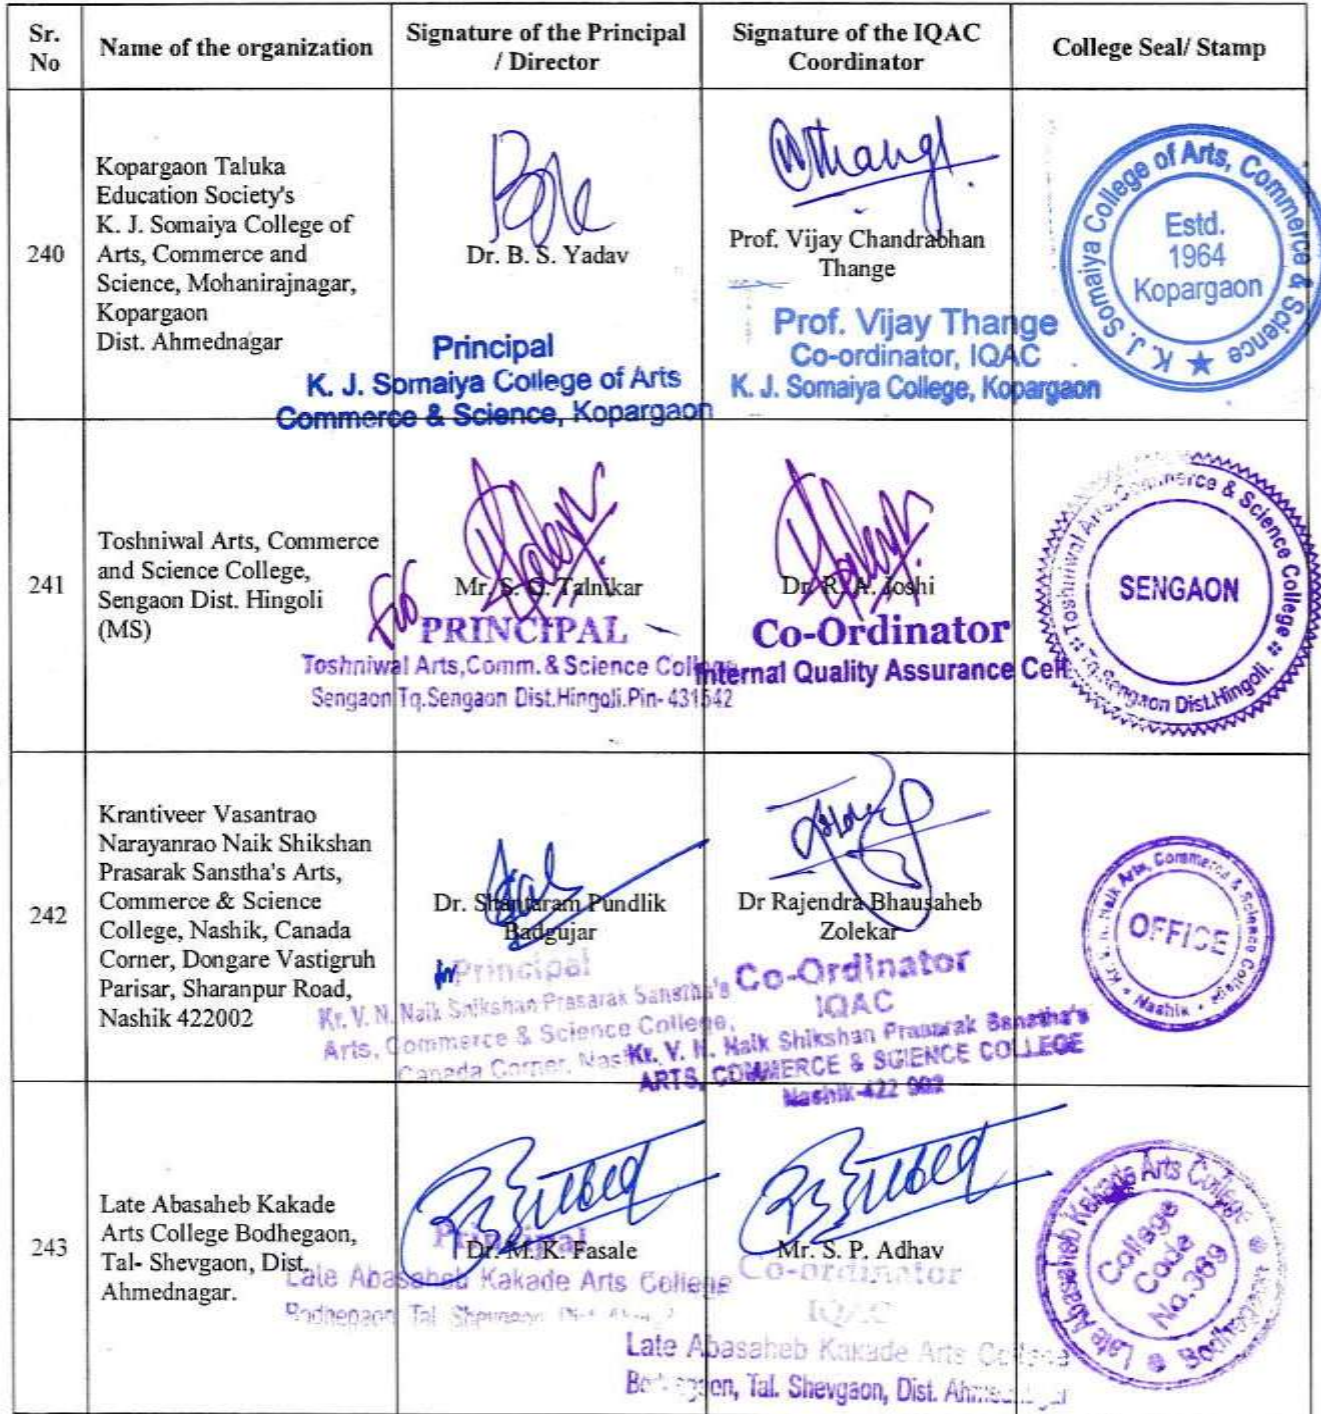 Sr. No
Name of the organization
Signature of the Principal / Director
Signature of the IQAC Coordinator
College Seal/ Stamp
240
Kopargaon Taluka
Education Society's
K. J. Somaiya College of
Arts, Commerce and
Science, Mohanirajnagar,
Kopargaon
Dist. Ahmednagar
Dr. B. S. Yadav
Principal
K. J. Somaiya College of Arts
Commerce & Science, Kopargaon
Prof. Vijay Chandrabhan
Thange
Prof. Vijay Thange
Co-ordinator, IQAC
K. J. Somaiya College, Kopargaon
K. J. Somaiya College of Arts, Commerce & Science
Estd.
1964
Kopargaon
241
Toshniwal Arts, Commerce
and Science College,
Sengaon Dist. Hingoli
(MS)
Mr. S. G. Talnikar
PRINCIPAL
Toshniwal Arts,Comm.& Science College
Sengaon Tq.Sengaon Dist.Hingoli.Pin-431542
Dr. R. A. Joshi
Co-Ordinator
Internal Quality Assurance Cell
Toshniwal Arts,Commerce & Science College
Tq.Sengaon Dist.Hingoli.
SENGAON
242
Krantiveer Vasantrao
Narayanrao Naik Shikshan
Prasarak Sanstha's Arts,
Commerce & Science
College, Nashik, Canada
Corner, Dongare Vastigruh
Parisar, Sharanpur Road,
Nashik 422002
Dr. Shantaram Pundlik
Badgujar
Principal
Kr. V. N. Naik Shikshan Prasarak Sanstha's
Arts, Commerce & Science College,
Canada Corner,
Dr Rajendra Bhausaheb
Zolekar
Co-Ordinator
IQAC
Kr. V. N. Naik Shikshan Prasarak Sanstha's
ARTS, COMMERCE & SCIENCE COLLEGE
Nashik-422 002
Kr. V. N. Naik Arts, Commerce & Science College
Nashik
OFFICE
243
Late Abasaheb Kakade
Arts College Bodhegaon,
Tal- Shevgaon, Dist.
Ahmednagar.
Dr. M. K. Fasale
Principal
Late Abasaheb Kakade Arts College
Bodhegaon Tal. Shevgaon
Mr. S. P. Adhav
Co-ordinator
IQAC
Late Abasaheb Kakade Arts College
Tal. Shevgaon, Dist.
Late Abasaheb Kakade Arts College
Bodhegaon
College
Code
No.389